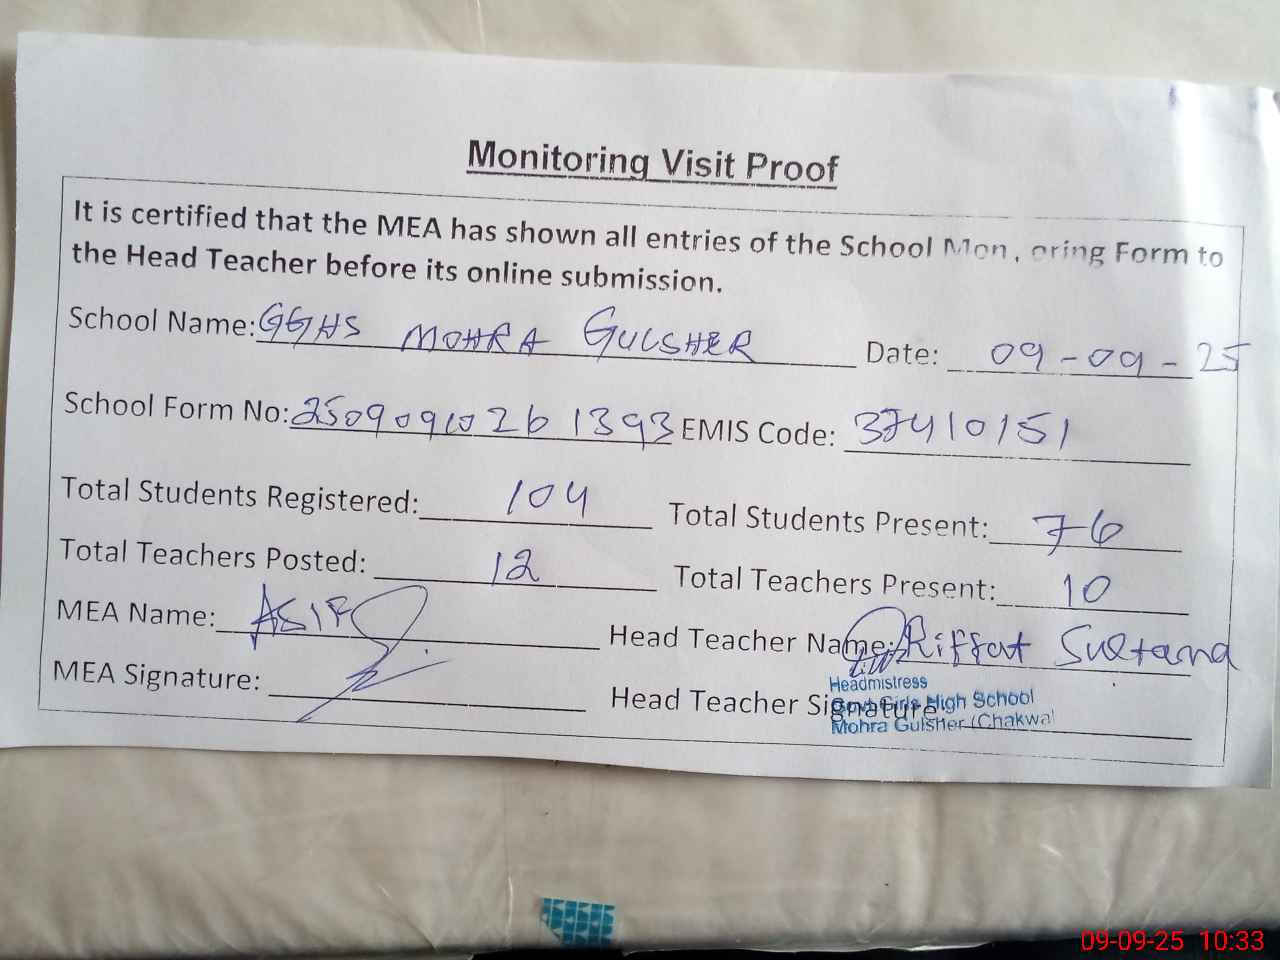 Monitoring Visit Proof
It is certified that the MEA has shown all entries of the School Mon, oring Form to
the Head Teacher before its online submission.
School Name: GGHS MOHRA GULSHER Date: 09-09-25
School Form No: 2509091026 1393 EMIS Code: 37410151
Total Students Registered: 104 Total Students Present: 76
Total Teachers Posted: 12 Total Teachers Present: 10
MEA Name: ASIF Head Teacher Name: Riffat Sultana
MEA Signature: Head Teacher Signature
Headmistress
Govt Girls High School
Mohra Gulsher (Chakwal
09-09-25 10:33